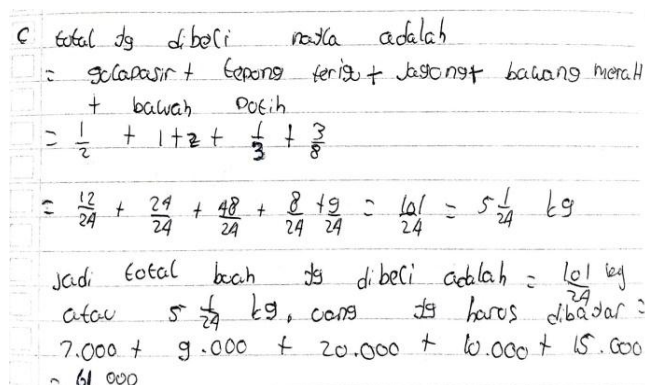 C total yg dibeli nayla adalah
= gulapasir + tepong terigu + Jagong + bawang merah
+ bawah Potih
= 1/2 + 1 + 2 + 1/3 + 3/8
= 12/24 + 24/24 + 48/24 + 8/24 + 9/24 = 101/24 = 5 1/24 kg
Jadi total buah yg dibeli adalah = 101/24 kg
atau 5 1/24 kg, uang yg harus dibayar =
7.000 + 9.000 + 20.000 + 10.000 + 15.000
= 61.000